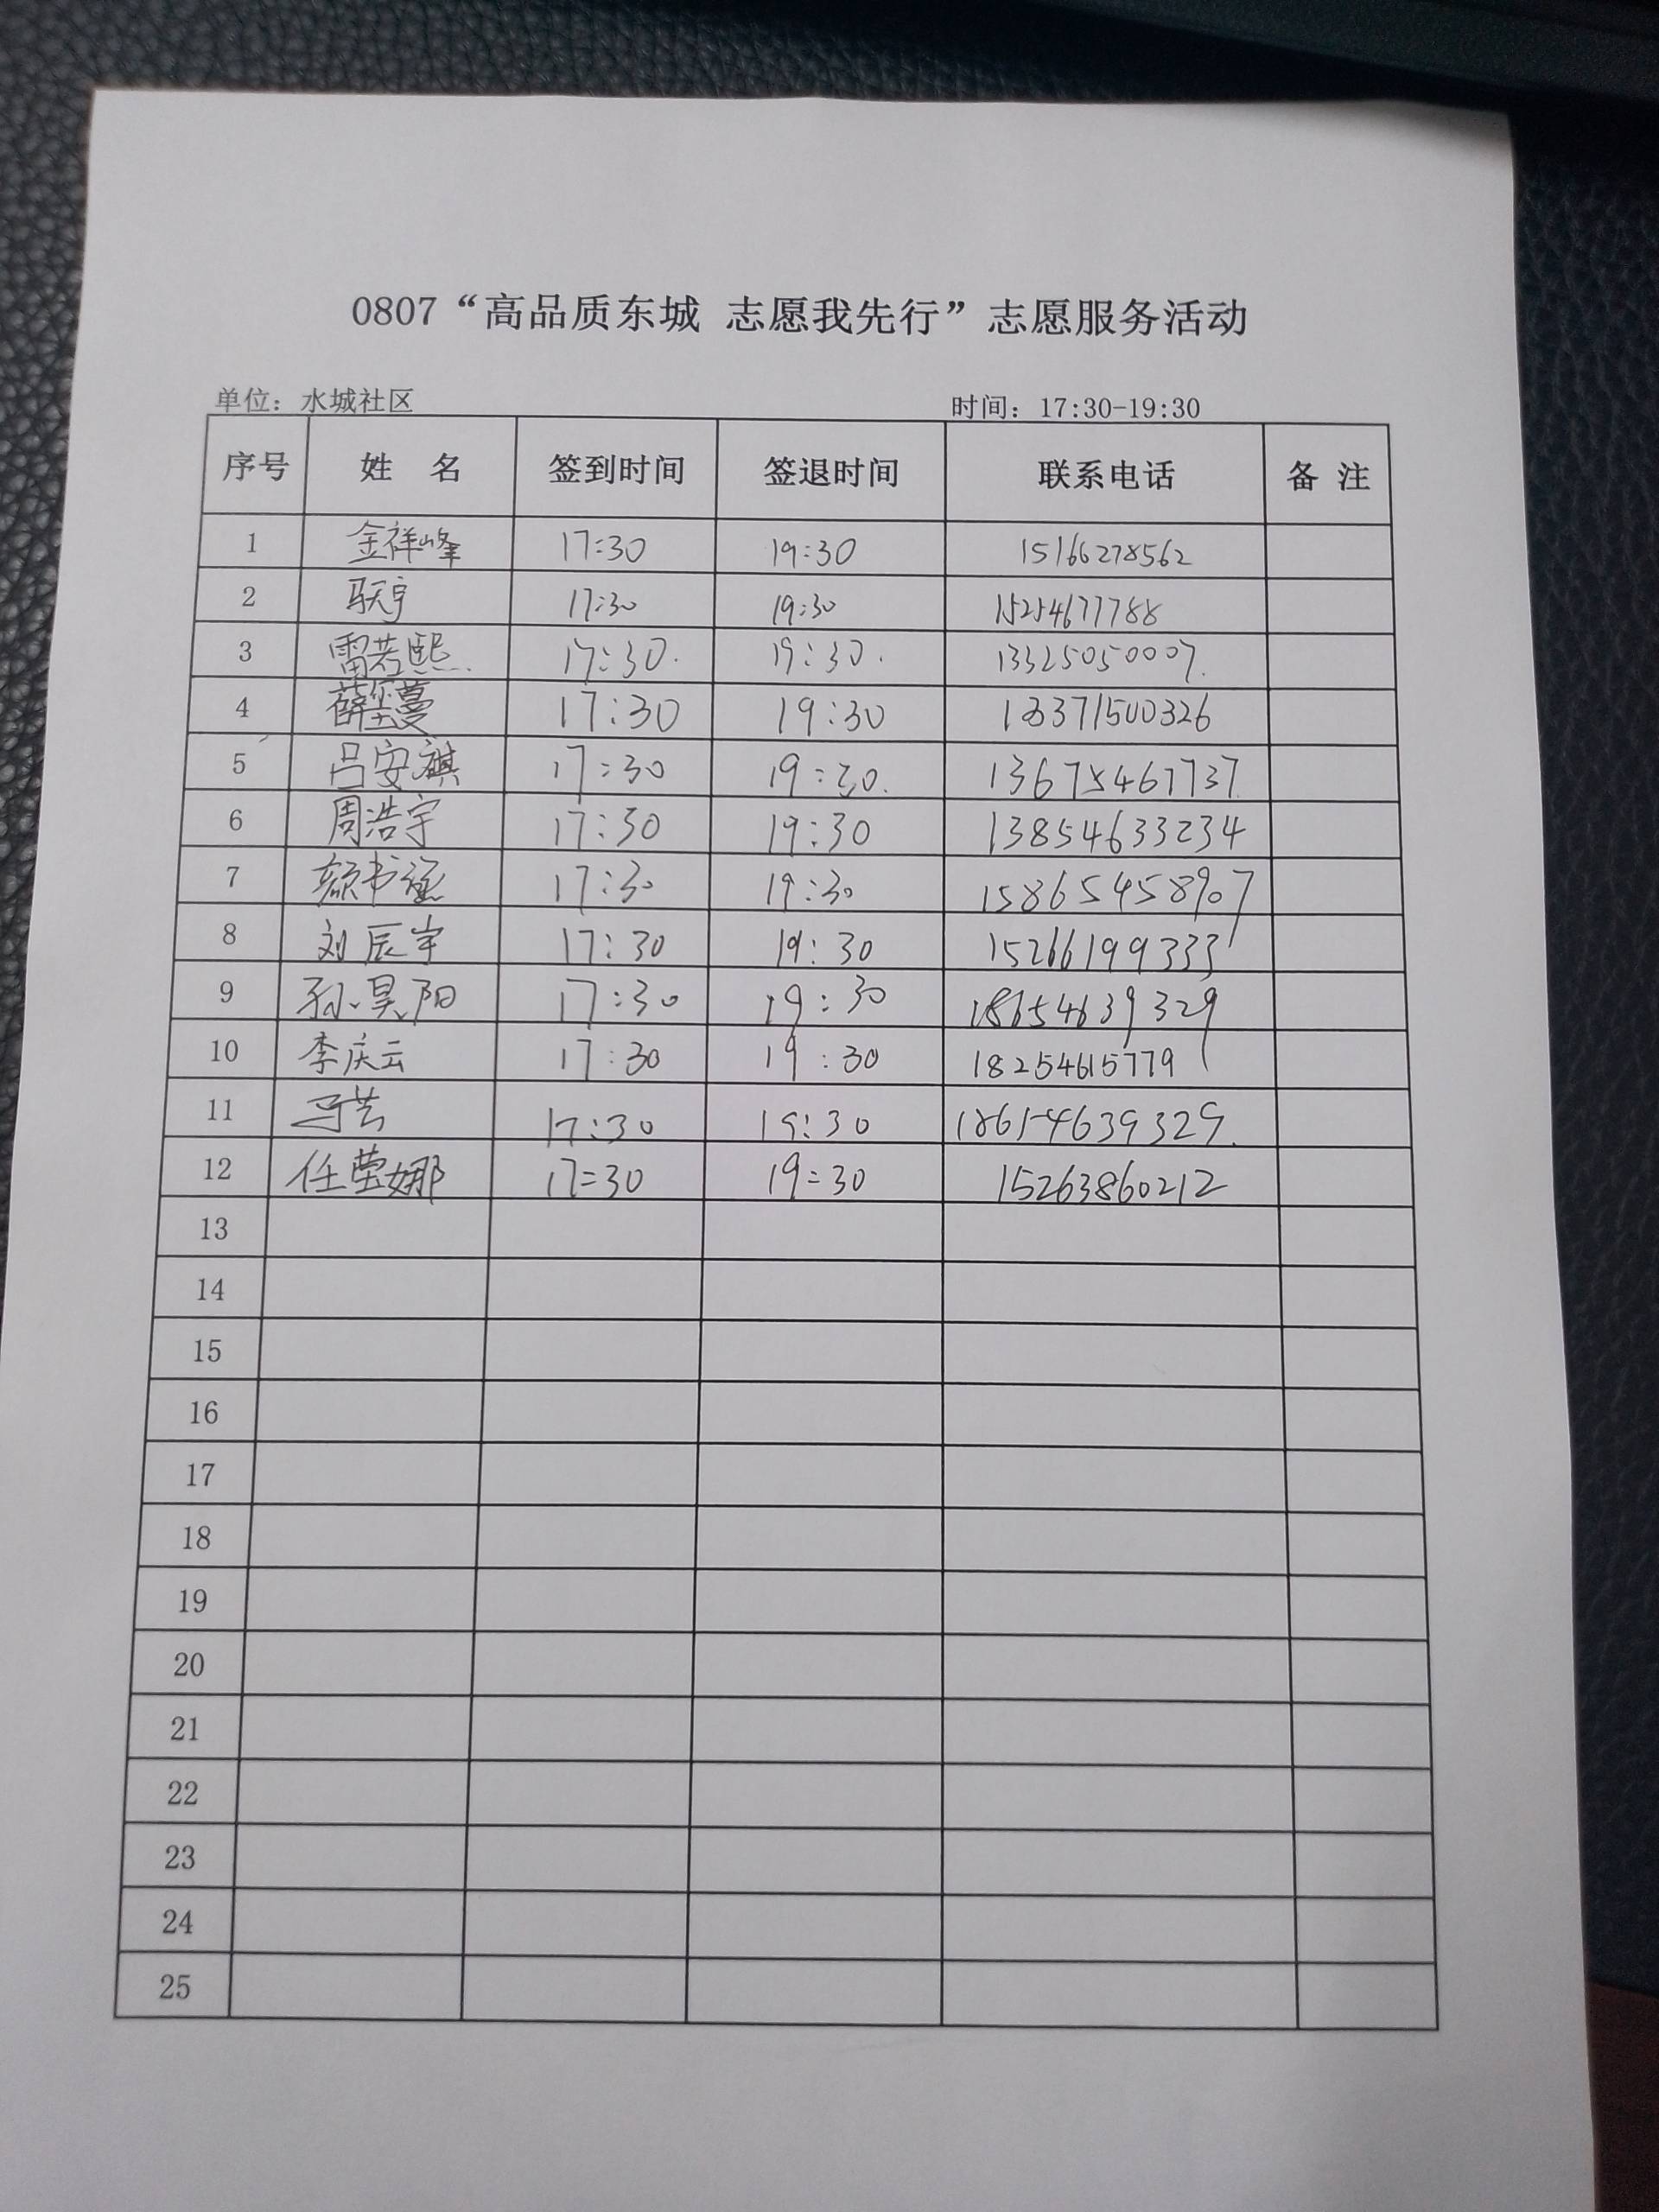 0807“高品质东城 志愿我先行”志愿服务活动
单位：水城社区 时间：17:30-19:30
序号 姓 名 签到时间 签退时间 联系电话 备 注
1 金祥峰 17:30 19:30 15166278562
2 17:30 19:30 15254677788
3 雷若熙 17:30. 19:30. 13325050007.
4 17:30 19:30
5 吕安祺 17:30 19:30. 13675467737.
6 周浩宇 17:30 19:30 13854633234
7 17:30 19:30 15865458907
8 刘辰宇 17:30 19:30 15266199333
9 孙昊阳 17:30 19:30 18654639329
10 李庆云 17:30 19:30 18254615779
11 马芸 17:30 19:30 18654639329.
12 任莹娜 17:30 19:30 15263860212
13
14
15
16
17
18
19
20
21
22
23
24
25